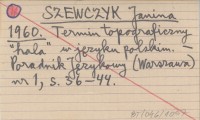 SZEWCZYK Janina
1960. Termin topograficzny
"hala" w języku polskim. –
Poradnik Językowy (Warszawa)
nr 1, s. 36–44.